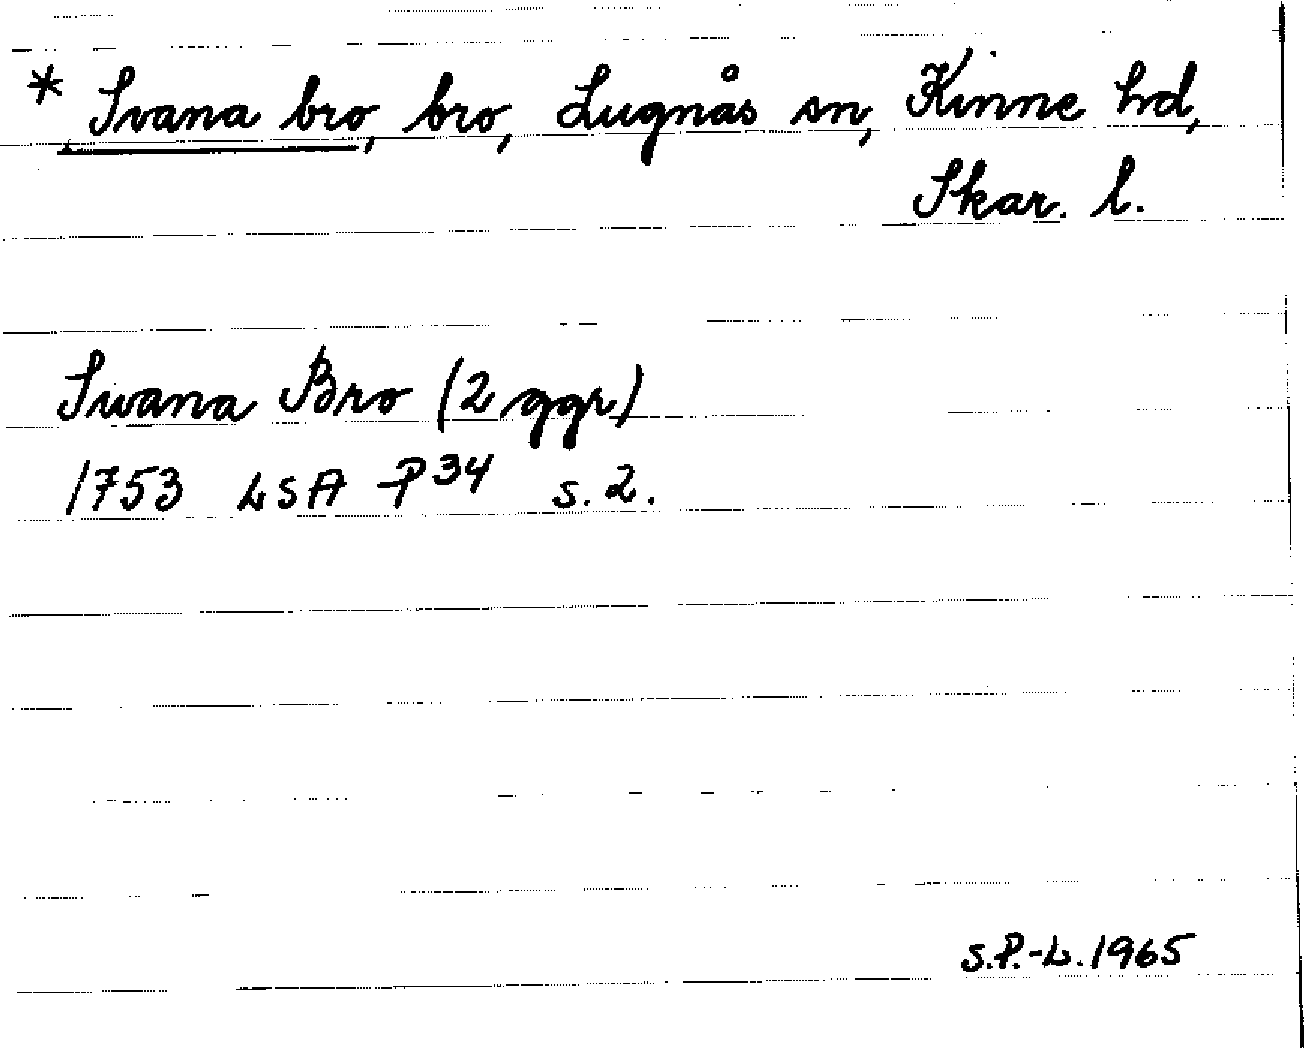 * Svana bro, bro, Lugnås sn, Kinne hd,
Skar. l.
Swana Bro (2 ggr)
1753 LSA P34 s. 2.
S.P.-L. 1965